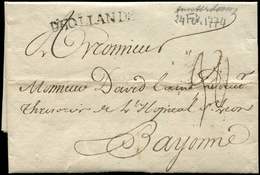 D'HOLLANDE
Amsterdam
24 Feb. 1774
A Monsieur
Monsieur David
Thresorier de L'Hopital St
Bayonne